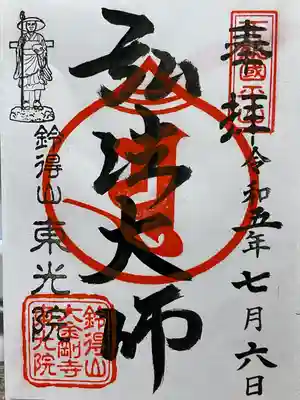 奉拝
令和五年七月六日
弘法大師
鈴得山
東光院
鈴得山
大金剛寺
東光院